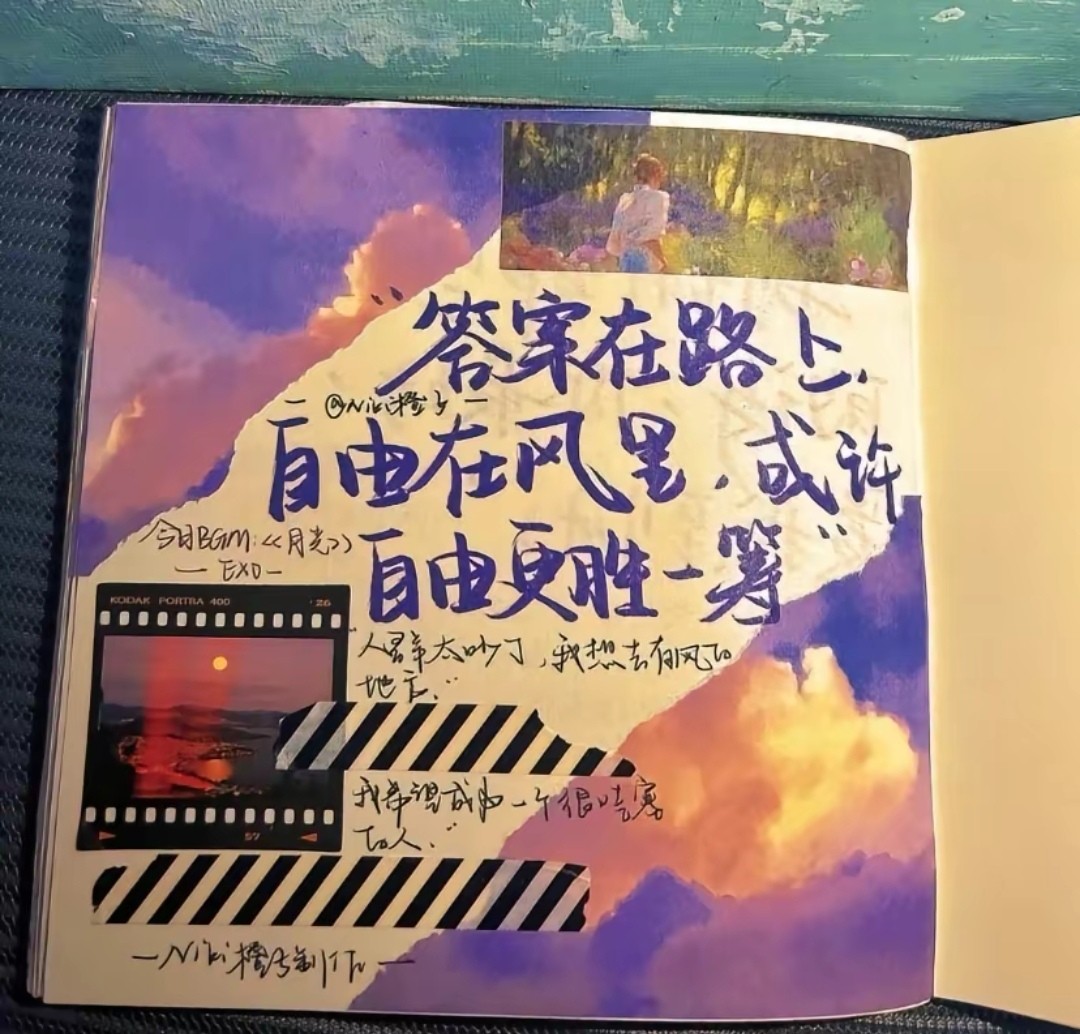 "答案在路上,
- @Niki橙子 -
自由在风里,或许
今日BGM:<<月光>>
自由更胜一筹"
- EXO -
KODAK PORTRA 400
26
"人群太吵了,我想去有风的
地方."
我希望成为一个很哇塞
的人."
57
-Niki橙子制作-